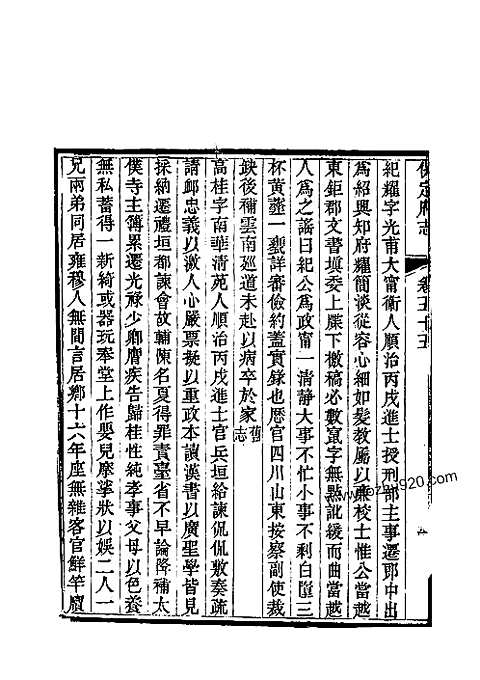 保定府志 卷五十五
紀耀字光甫大甯衛人順治丙戌進士授刑部主事遷郎中出
為紹興知府耀簡淡從容心細如髮教屬以廉校士惟公當越
東鉅郡文書填委上牒下檄稿必數竄字無點訛緩而曲當越
人為之謠曰紀公為政甯一清靜大事不忙小事不剩白隨三
杯黃虀一甕詳審儉約蓋實錄也歷官四川山東按察副使裁
缺後補雲南廵道未赴以病卒於家舊志
高桂字南華清苑人順治丙戌進士官兵垣給諫侃侃敷奏疏
請卹忠義以激人心嚴票擬以重政本讀漢書以廣聖學皆見
採納遷禮垣都諫會故輔陳名夏得罪責臺省不早論降補太
僕寺主簿累遷光祿少卿膺疾告歸桂性純孝事父母以色養
無私蓄得一新綺或器玩奉堂上作嬰兒摩挲狀以娛二人一
兄兩弟同居雍穆人無間言居鄉十六年座無雜客官鮮竿牘